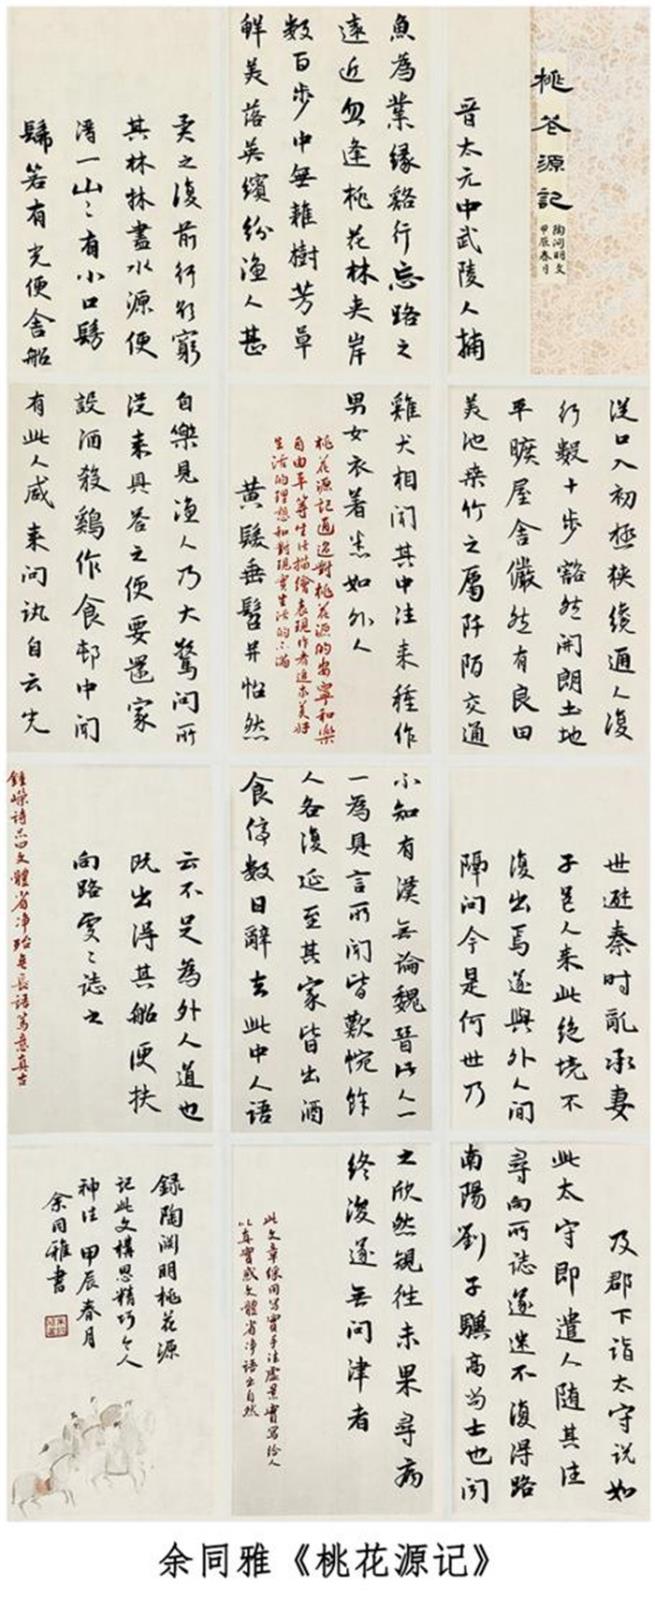 桃花源記
陶渊明文
甲辰春月
晋太元中武陵人捕
魚為業缘谿行忘路之
遠近忽逢桃花林夹岸
数百步中無雜樹芳草
鮮美落英缤纷渔人甚
異之復前行欲窮
其林林盡水源便
得一山〻有小口髣
髴若有光便舍船
從口入初極狹纔通人復
行数十步豁然開朗土地
平曠屋舍儼然有良田
美池桑竹之屬阡陌交通
雞犬相聞其中往来種作
男女衣着悉如外人
桃花源記通过對桃花源的安寧和樂
自由平等生活描繪表現作者追求美好
生活的理想和對現實生活的不滿
黄髮垂髫并怡然
自樂見渔人乃大驚问所
從来具答之便要還家
設酒殺鷄作食邨中聞
有此人咸来问訊自云先
世避秦时乱率妻
子邑人来此绝境不
復出焉遂與外人間
隔问今是何世乃
不知有漢無論魏晉此人一
一為具言所聞皆歎惋餘
人各復延至其家皆出酒
食停数日辭去此中人語
云不足為外人道也
既出得其船便扶
向路處〻誌之
鍾嶸詩品曰文體省净殆無長語篤意真古
及郡下诣太守说如
此太守即遣人随其往
尋向所誌遂迷不復得路
南陽劉子驥高尚士也聞
之欣然規往未果尋病
終後遂無问津者
此文章採用写實手法虚景實寫给人
以真實感文體省净语出自然
録陶渊明桃花源
記此文構思精巧令人
神往甲辰春月
余同雅書
余同雅《桃花源记》